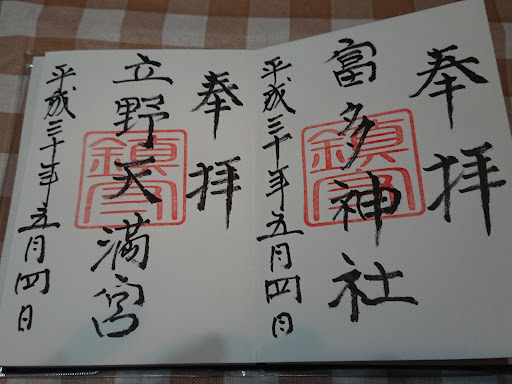 奉拝
富多神社
平成三十年五月四日
奉拝
立野天満宮
平成三十年五月四日